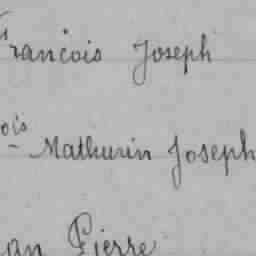 François Joseph
ois Mathurin Joseph
an Pierre